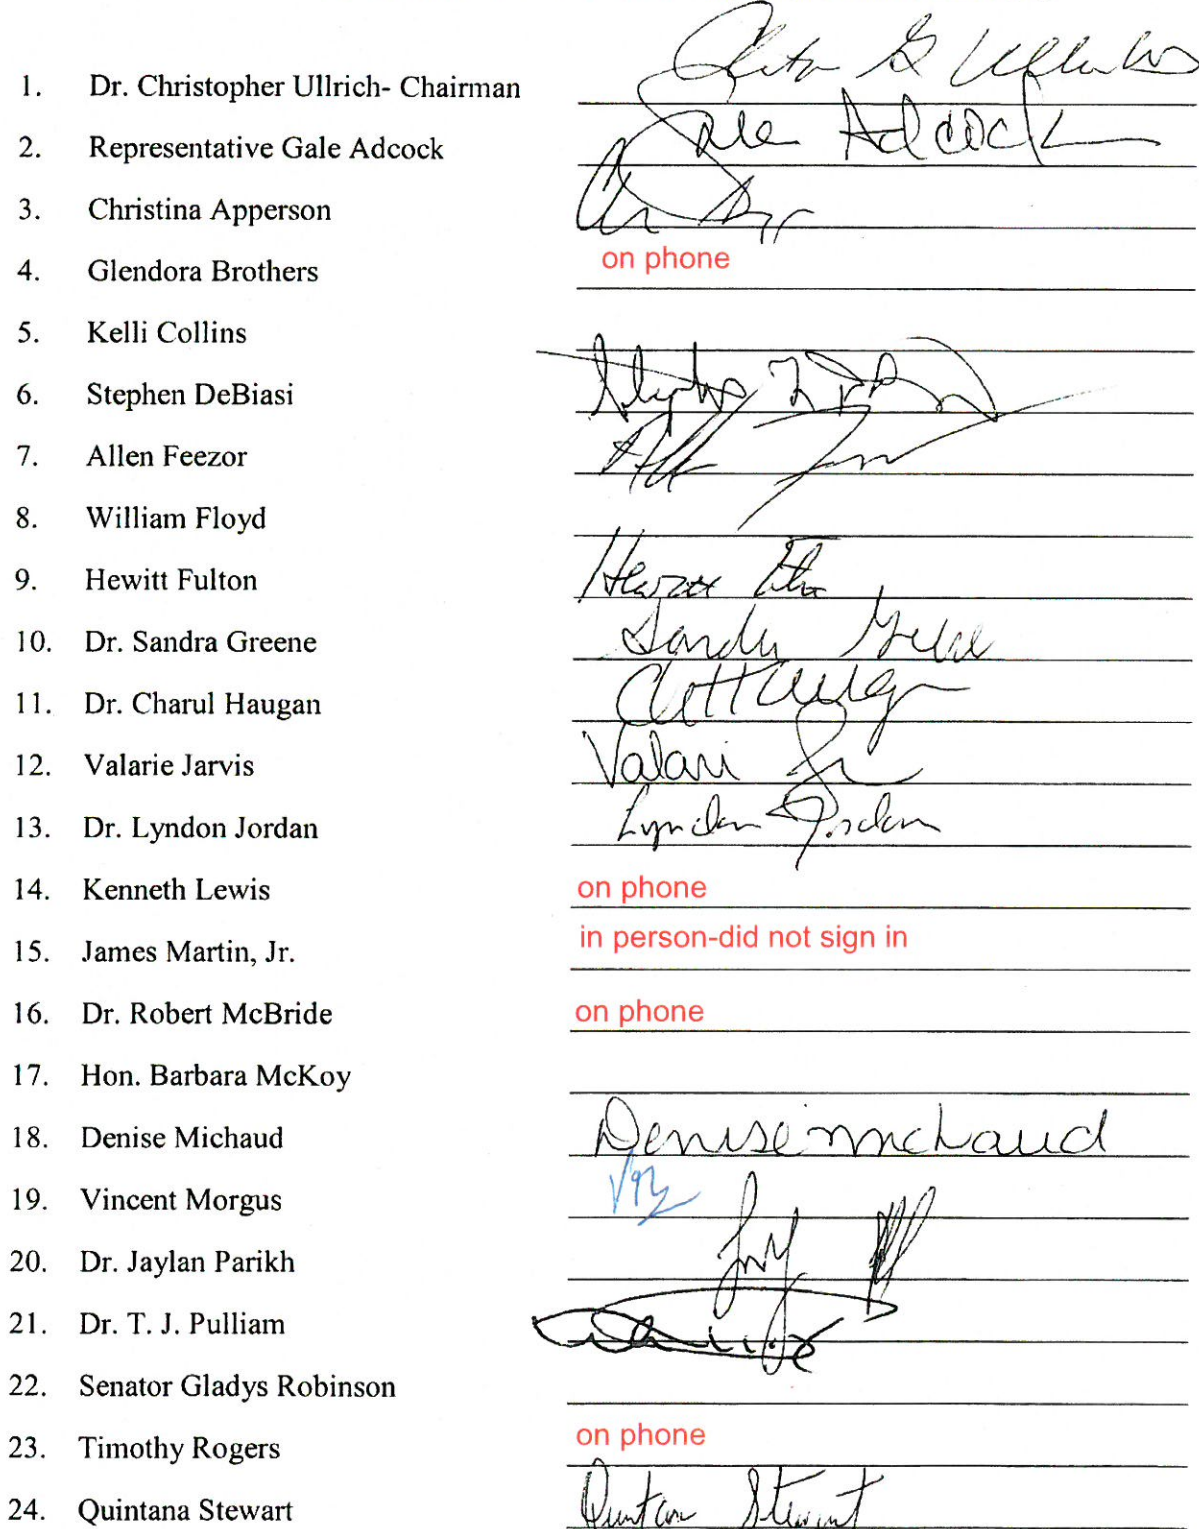 1. Dr. Christopher Ullrich- Chairman
2. Representative Gale Adcock Gale Adcock
3. Christina Apperson
4. Glendora Brothers on phone
5. Kelli Collins
6. Stephen DeBiasi
7. Allen Feezor
8. William Floyd
9. Hewitt Fulton
10. Dr. Sandra Greene Sandra Greene
11. Dr. Charul Haugan
12. Valarie Jarvis
13. Dr. Lyndon Jordan Lyndon Jordan
14. Kenneth Lewis on phone
15. James Martin, Jr. in person-did not sign in
16. Dr. Robert McBride on phone
17. Hon. Barbara McKoy
18. Denise Michaud Denise Michaud
19. Vincent Morgus
20. Dr. Jaylan Parikh
21. Dr. T. J. Pulliam
22. Senator Gladys Robinson
23. Timothy Rogers on phone
24. Quintana Stewart Quintana Stewart